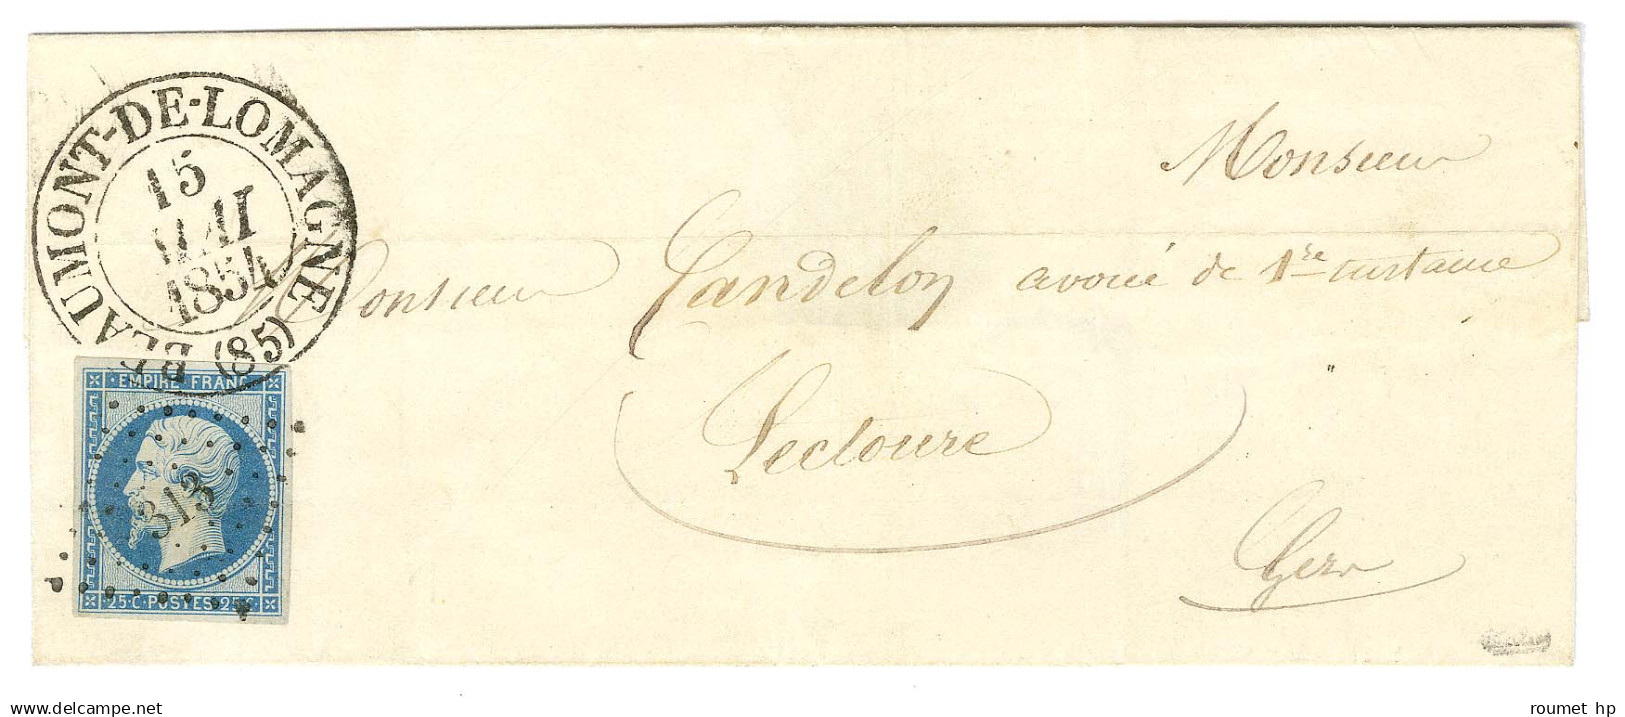 BEAUMONT-DE-LOMAGNE (85)
15
MAI
1854
Monsieur
Monsieur Candelon avoué de 1re instance
Lectoure
Gers
EMPIRE FRANC
313
25·C·POSTES·25·C·
www.delcampe.net
roumet hp